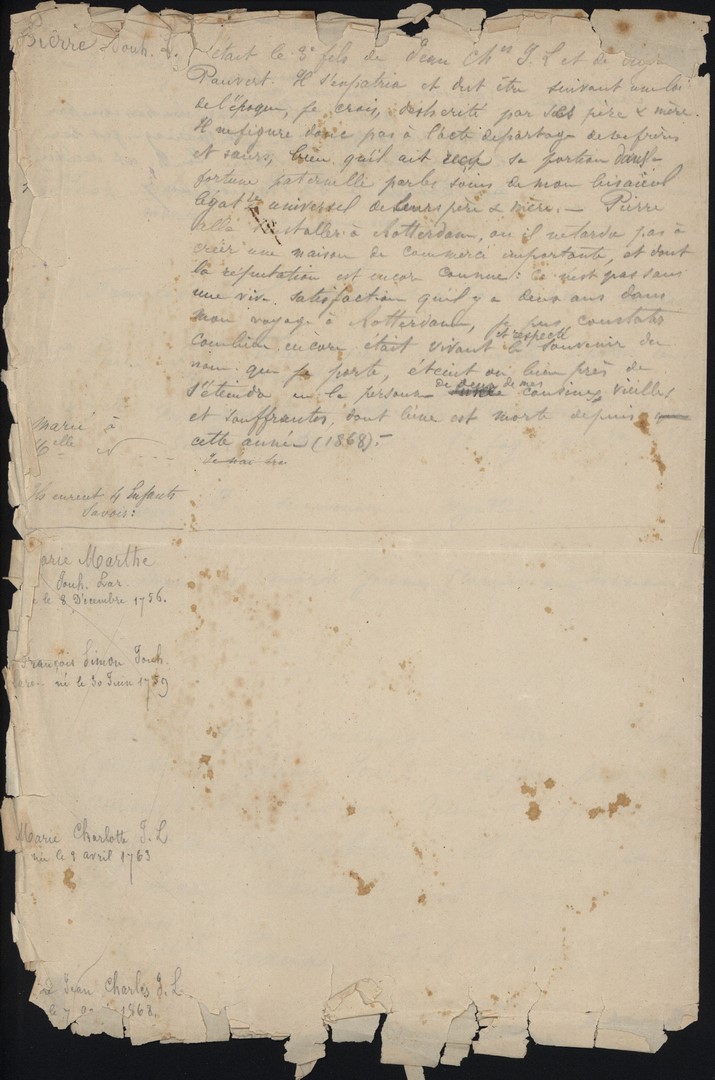 Pierre Jouh. L.
était le 3e fils de Jean Ch es J. L et de
Pauvert. Il s'expatria et dut être suivant une loi
de l'époque, je crois, deshérité par ses père & mère.
Il ne figure donc pas à l'acte de partage de ses frères
et sœurs, bien qu'il ait reçu sa portion dans la
fortune paternelle par les soins de mon bisaieul
légat re universel de leurs père & mère. — Pierre
alla s'installer à Rotterdam, où il ne tarda pas à
créer une maison de commerce importante, et dont
la réputation est encor connue : ce n'est pas sans
une vive satisfaction qu'il y a deux ans dans
mon voyage à Rotterdam, je pus constater
combien encore était vivant et respecté le souvenir du
nom que je porte, éteint ou bien près de
s'éteindre en la personne de deux de mes cousines vieilles
et souffrantes, dont l'une est morte depuis
cette année (1868). —
marié à
Melle
Ils eurent 4 Enfants
Savoir :
Marie Marthe
Jouh. Lar.
le 8 Décembre 1756.
François Simon Jouh.
né le 30 Juin 1759
Marie Charlotte J. L
née le 9 avril 1763
Jean Charles J. L
le 7